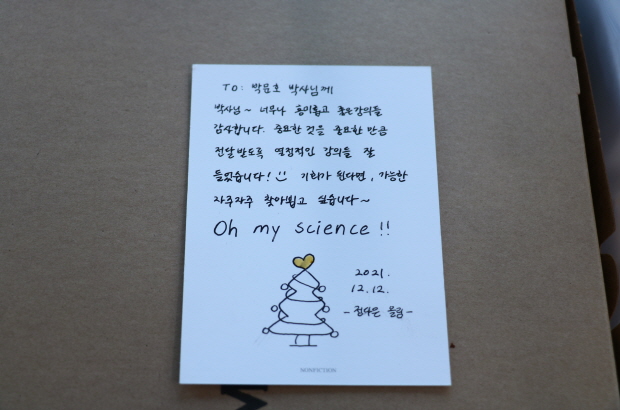 TO: 박문호 박사님께
박사님~ 너무나 흥미롭고 좋은강의들
감사합니다. 중요한 것을 중요한 만큼
전달받도록 열정적인 강의들 잘
들었습니다! 기회가 된다면, 가능한
자주자주 찾아뵙고 싶습니다~
Oh my science !!
2021.
12.12.
- 올림 -
NONFICTION
M